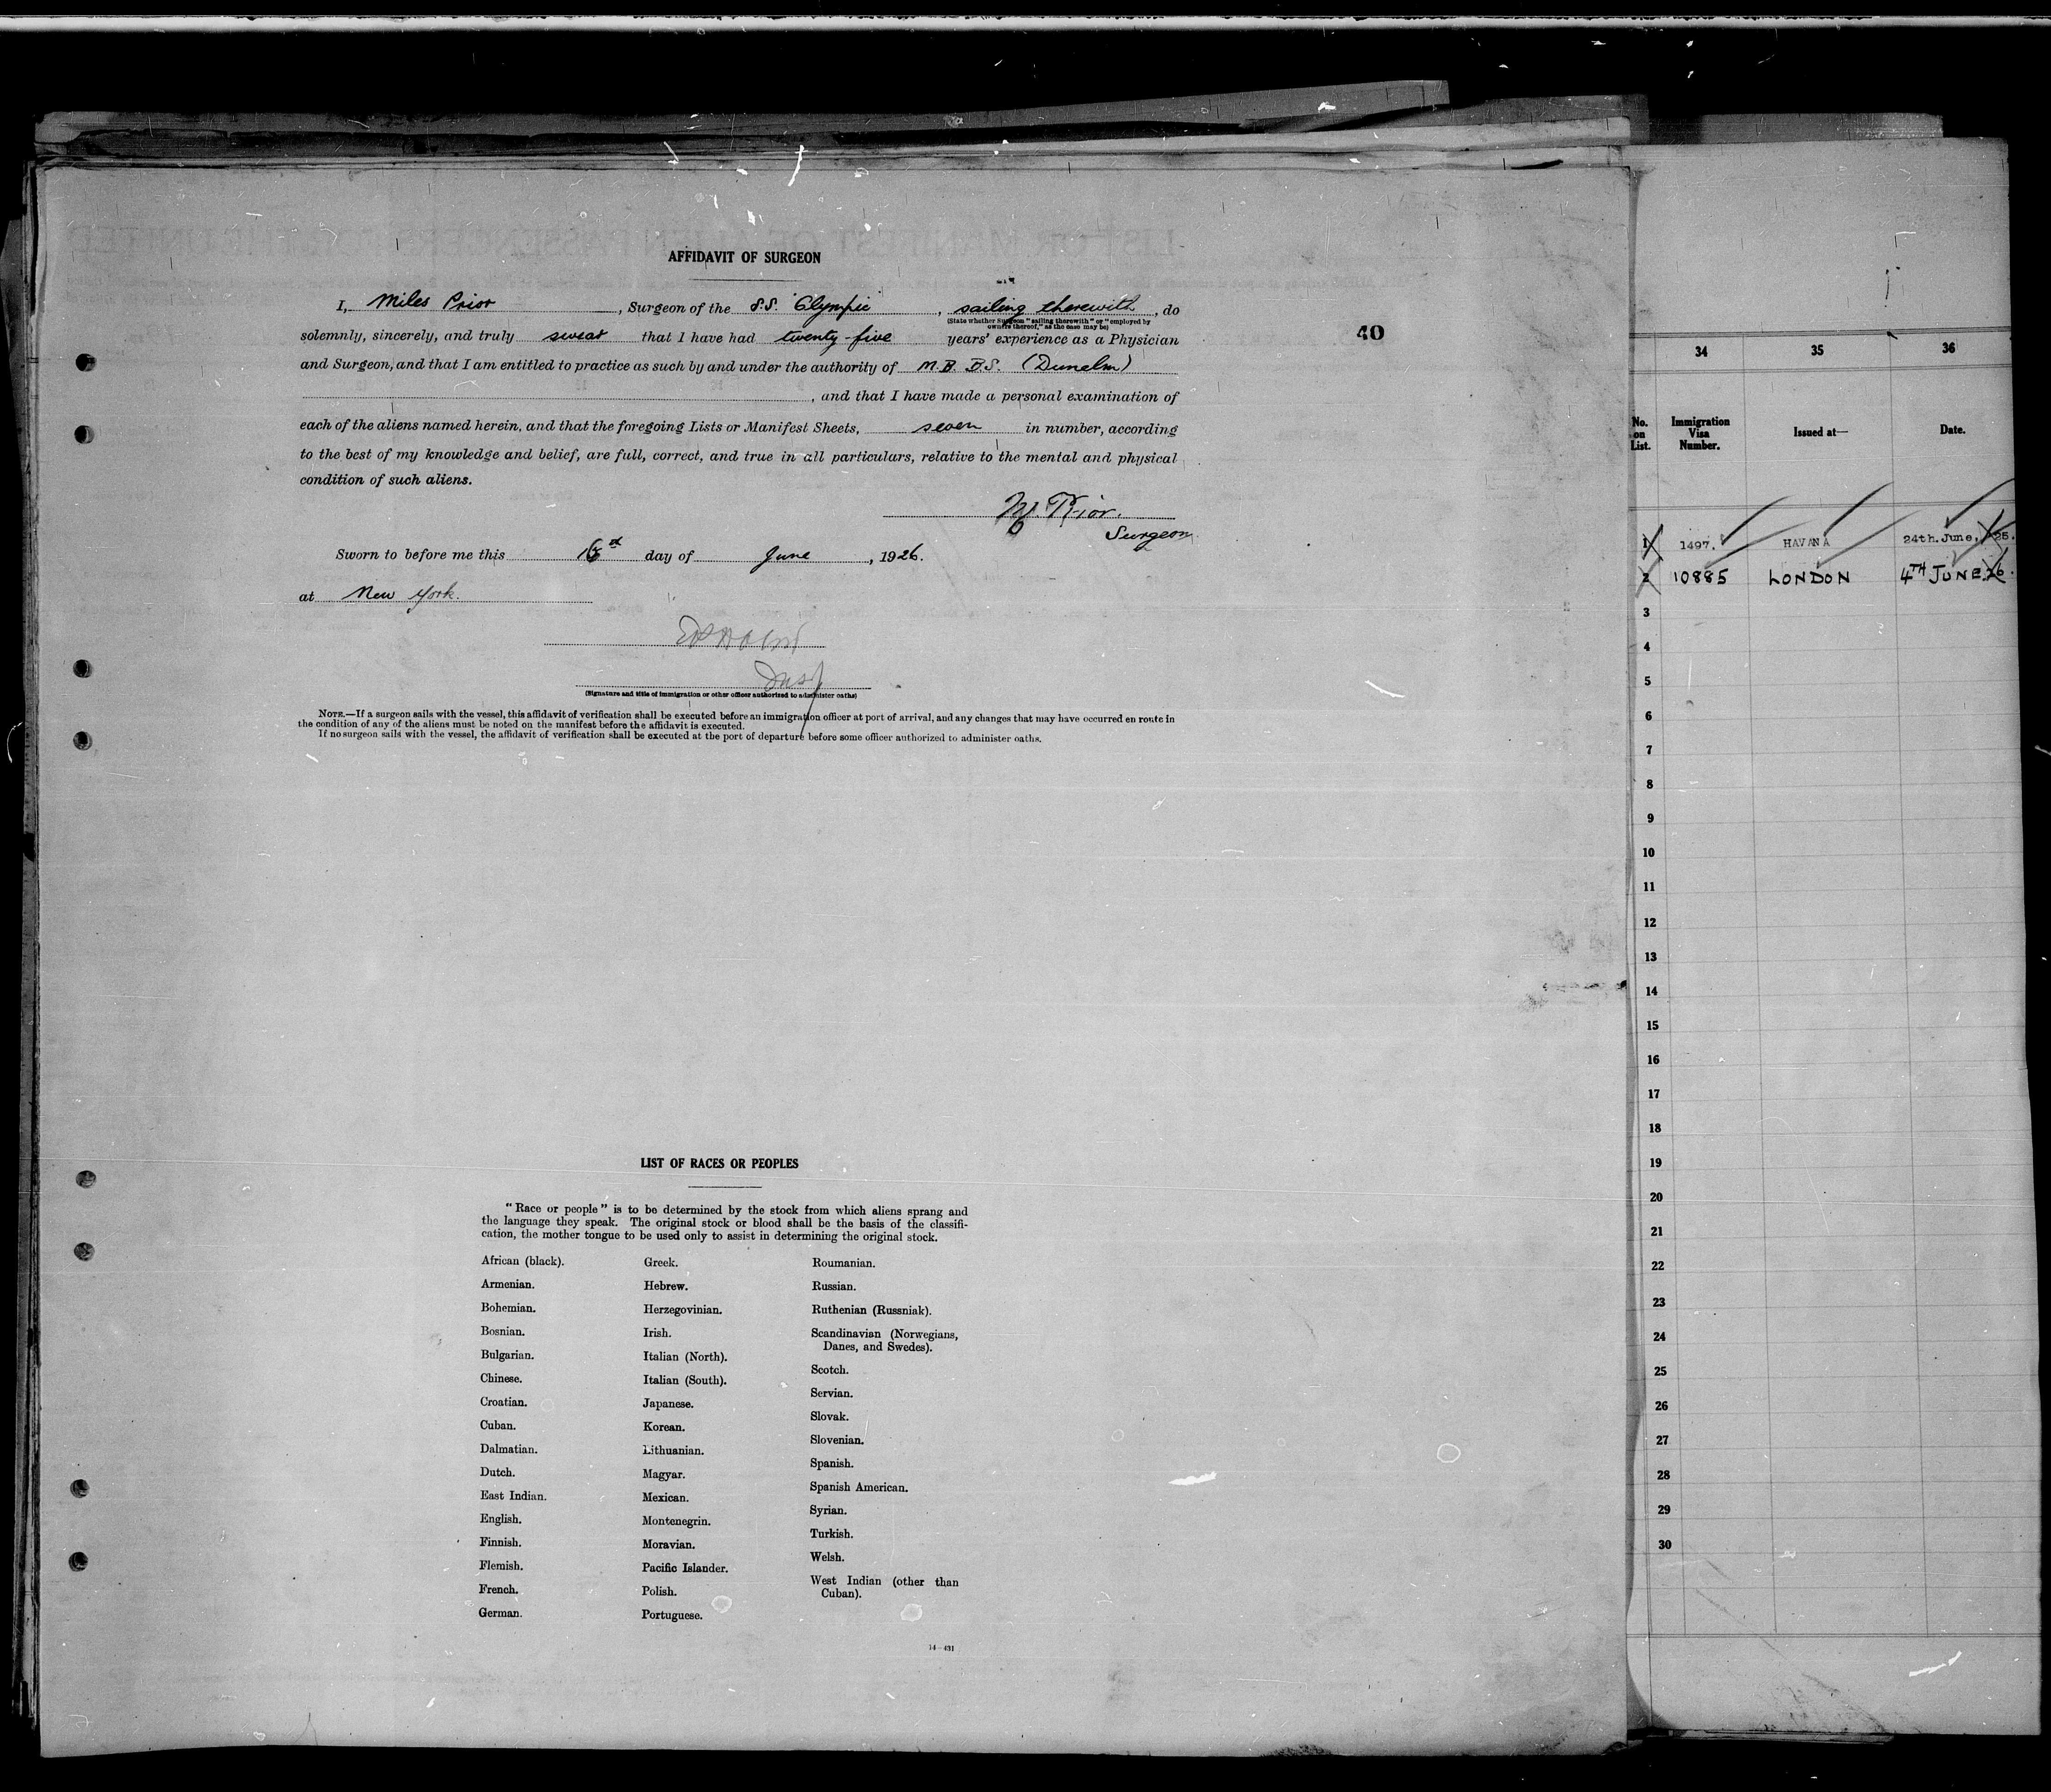 AFFIDAVIT OF SURGEON
I, Miles Prior, Surgeon of the S.S. "Olympic", sailing therewith, do
(State whether Surgeon "sailing therewith" or "employed by
owners thereof," as the case may be)
solemnly, sincerely, and truly swear that I have had twenty-five years' experience as a Physician
and Surgeon, and that I am entitled to practice as such by and under the authority of M.B. B.S. (Dunelm)
, and that I have made a personal examination of
each of the aliens named herein, and that the foregoing Lists or Manifest Sheets, seven in number, according
to the best of my knowledge and belief, are full, correct, and true in all particulars, relative to the mental and physical
condition of such aliens.
M. Prior.
Surgeon
Sworn to before me this day of June, 1926.
at New York.
Insp
(Signature and title of immigration or other officer authorized to administer oaths)
NOTE.—If a surgeon sails with the vessel, this affidavit of verification shall be executed before an immigration officer at port of arrival, and any changes that may have occurred en route in
the condition of any of the aliens must be noted on the manifest before the affidavit is executed.
If no surgeon sails with the vessel, the affidavit of verification shall be executed at the port of departure before some officer authorized to administer oaths.
40
LIST OF RACES OR PEOPLES
"Race or people" is to be determined by the stock from which aliens sprang and
the language they speak. The original stock or blood shall be the basis of the classifi-
cation, the mother tongue to be used only to assist in determining the original stock.
African (black).
Armenian.
Bohemian.
Bosnian.
Bulgarian.
Chinese.
Croatian.
Cuban.
Dalmatian.
Dutch.
East Indian.
English.
Finnish.
Flemish.
French.
German.
Greek.
Hebrew.
Herzegovinian.
Irish.
Italian (North).
Italian (South).
Japanese.
Korean.
Lithuanian.
Magyar.
Mexican.
Montenegrin.
Moravian.
Pacific Islander.
Polish.
Portuguese.
Roumanian.
Russian.
Ruthenian (Russniak).
Scandinavian (Norwegians,
Danes, and Swedes).
Scotch.
Servian.
Slovak.
Slovenian.
Spanish.
Spanish American.
Syrian.
Turkish.
Welsh.
West Indian (other than
Cuban).
14—431
34 35 36
No. on List. Immigration Visa Number. Issued at— Date.
1 1497. HAVANA 24th. June, 25.
2 10885 LONDON 4TH JUNE 26.
3
4
5
6
7
8
9
10
11
12
13
14
15
16
17
18
19
20
21
22
23
24
25
26
27
28
29
30